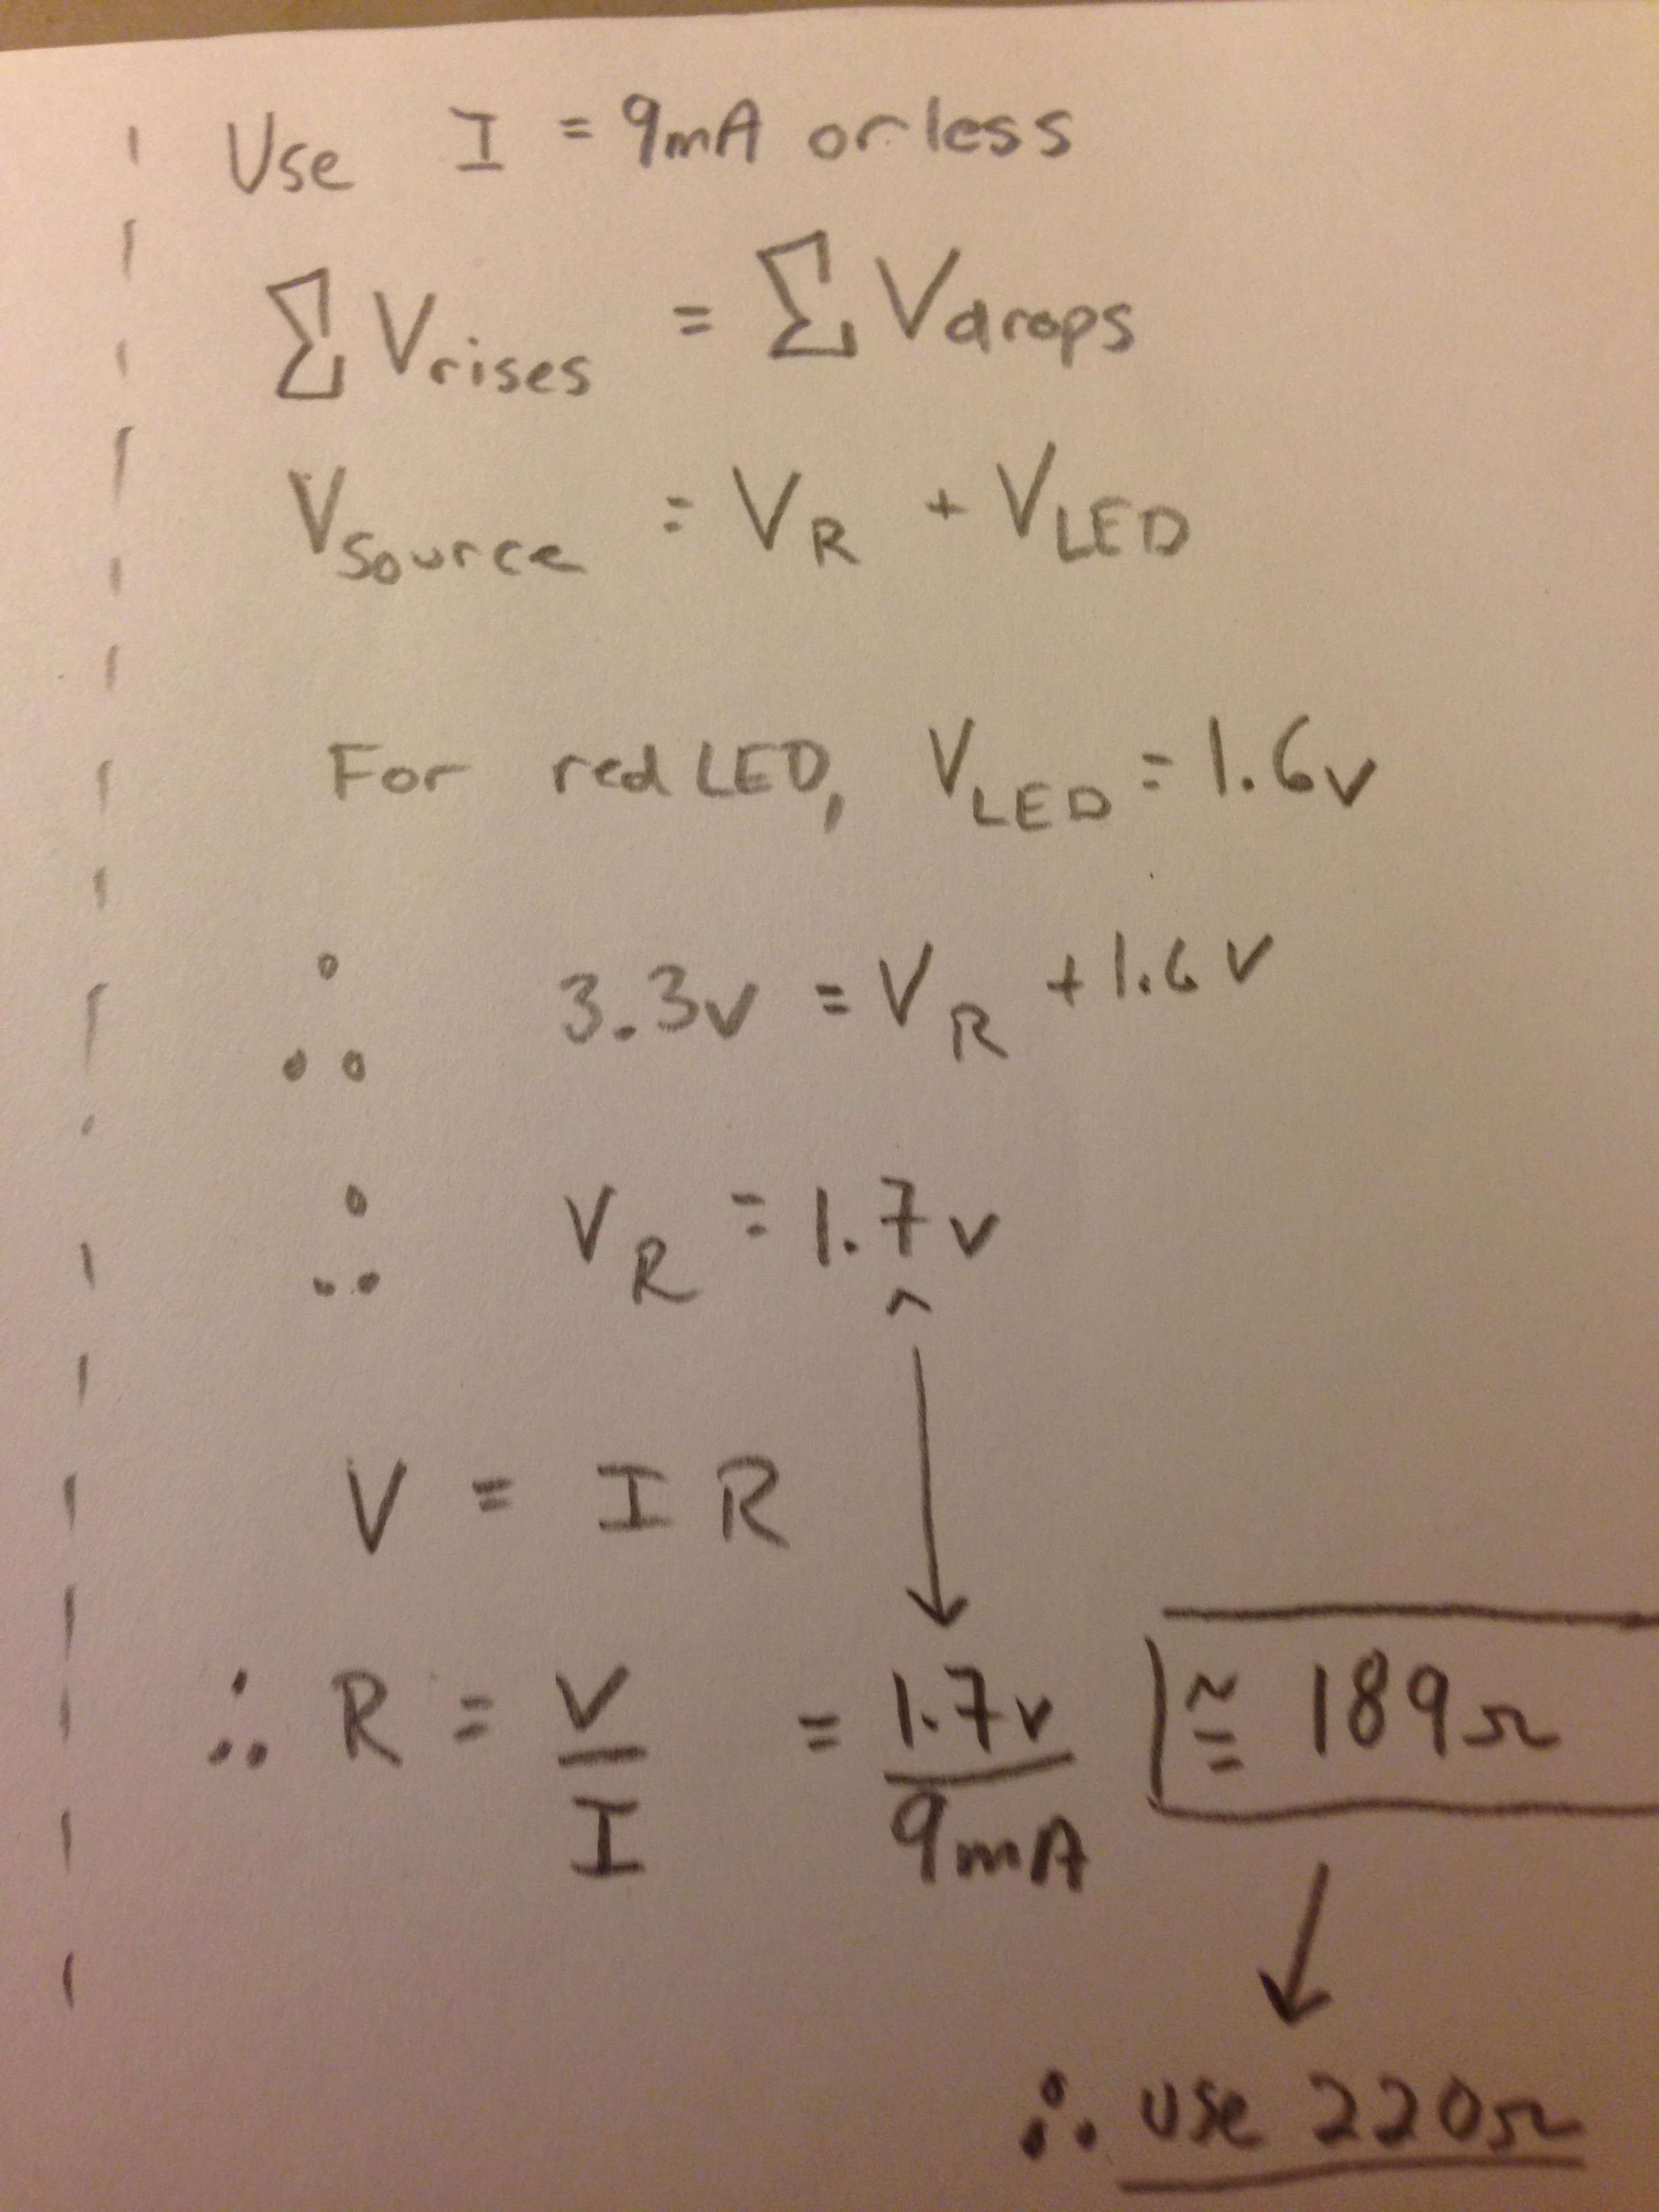 Use I = 9mA or less
∑ Vrises = ∑ Vdrops
VSource = VR + VLED
For red LED, VLED = 1.6v
∴ 3.3v = VR + 1.6v
∴ VR = 1.7v
V = IR
∴ R = V/I = 1.7v/9mA ≅ 189Ω
∴ use 220Ω